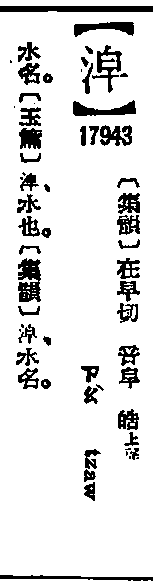 【】
17943
〔集韻〕在早切 音皁 皓上聲
ㄗㄠˋ tzaw
水名。〔玉篇〕水也。〔集韻〕水名。